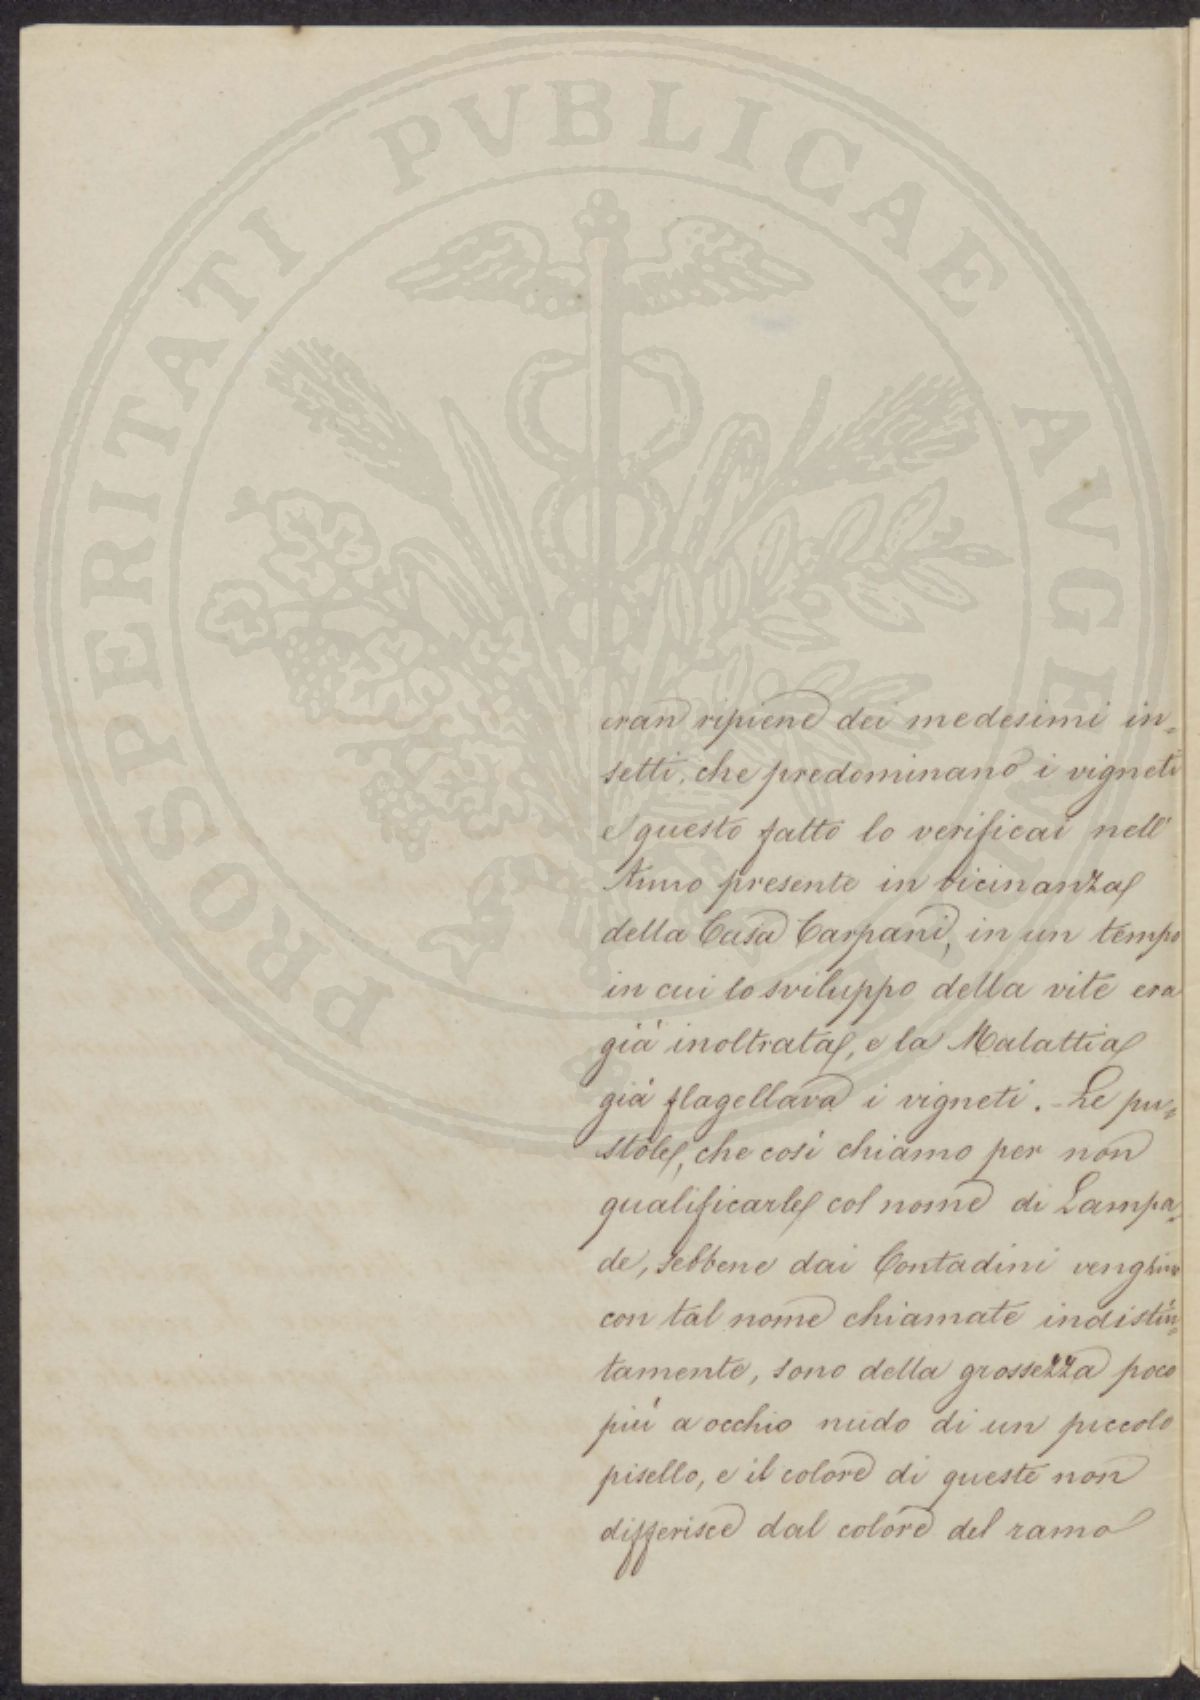 PROSPERITATI PVBLICAE AVGENDAE
eran ripiene dei medesimi in=
setti, che predominano i vigneti
e questo fatto lo verificai nell'
Anno presente in vicinanza
della Casa Carpani, in un tempo
in cui lo sviluppo della vite era
giá inoltrata, e la Malattia
giá flagellava i vigneti. - Le pu=
stole, che cosí chiamo per non
qualificarle col nome di Lampa=
de, sebbene dai Contadini venghino
con tal nome chiamate indistin=
tamente, sono della grossezza poco
piú a occhio nudo di un piccolo
pisello, e il colore di queste non
differisce dal colore del ramo